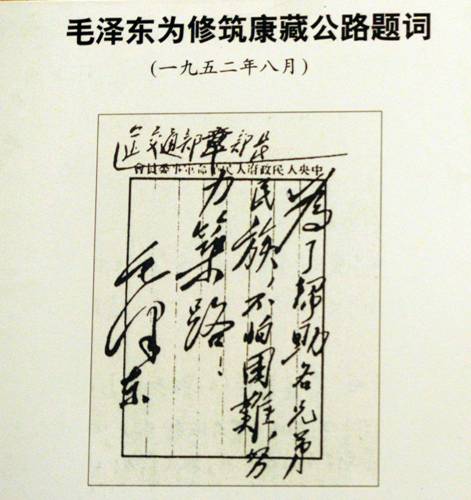 毛泽东为修筑康藏公路题词
(一九五二年八月)
交通部章部长
中央人民政府人民革命軍事委員會
為了帮助各兄弟
民族,不怕困難,努
力築路!
毛泽东